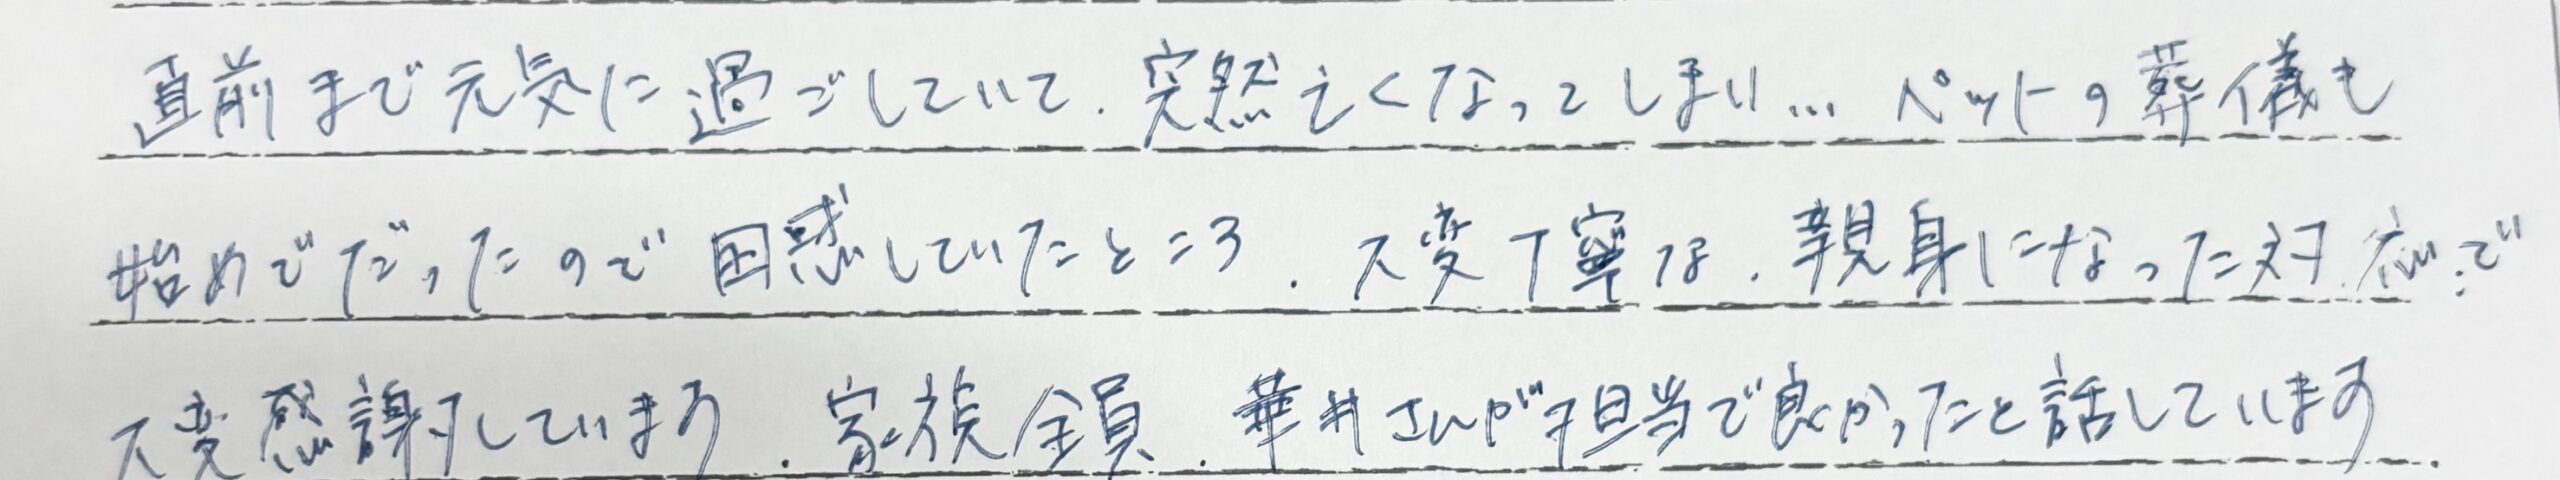 直前まで元気に過ごしていて、突然亡くなってしまい… ペットの葬儀も
始めてだったので困惑していたところ、大変丁寧な、親身になった対応で
大変感謝しています。家族全員、華井さんが担当で良かったと話しています。